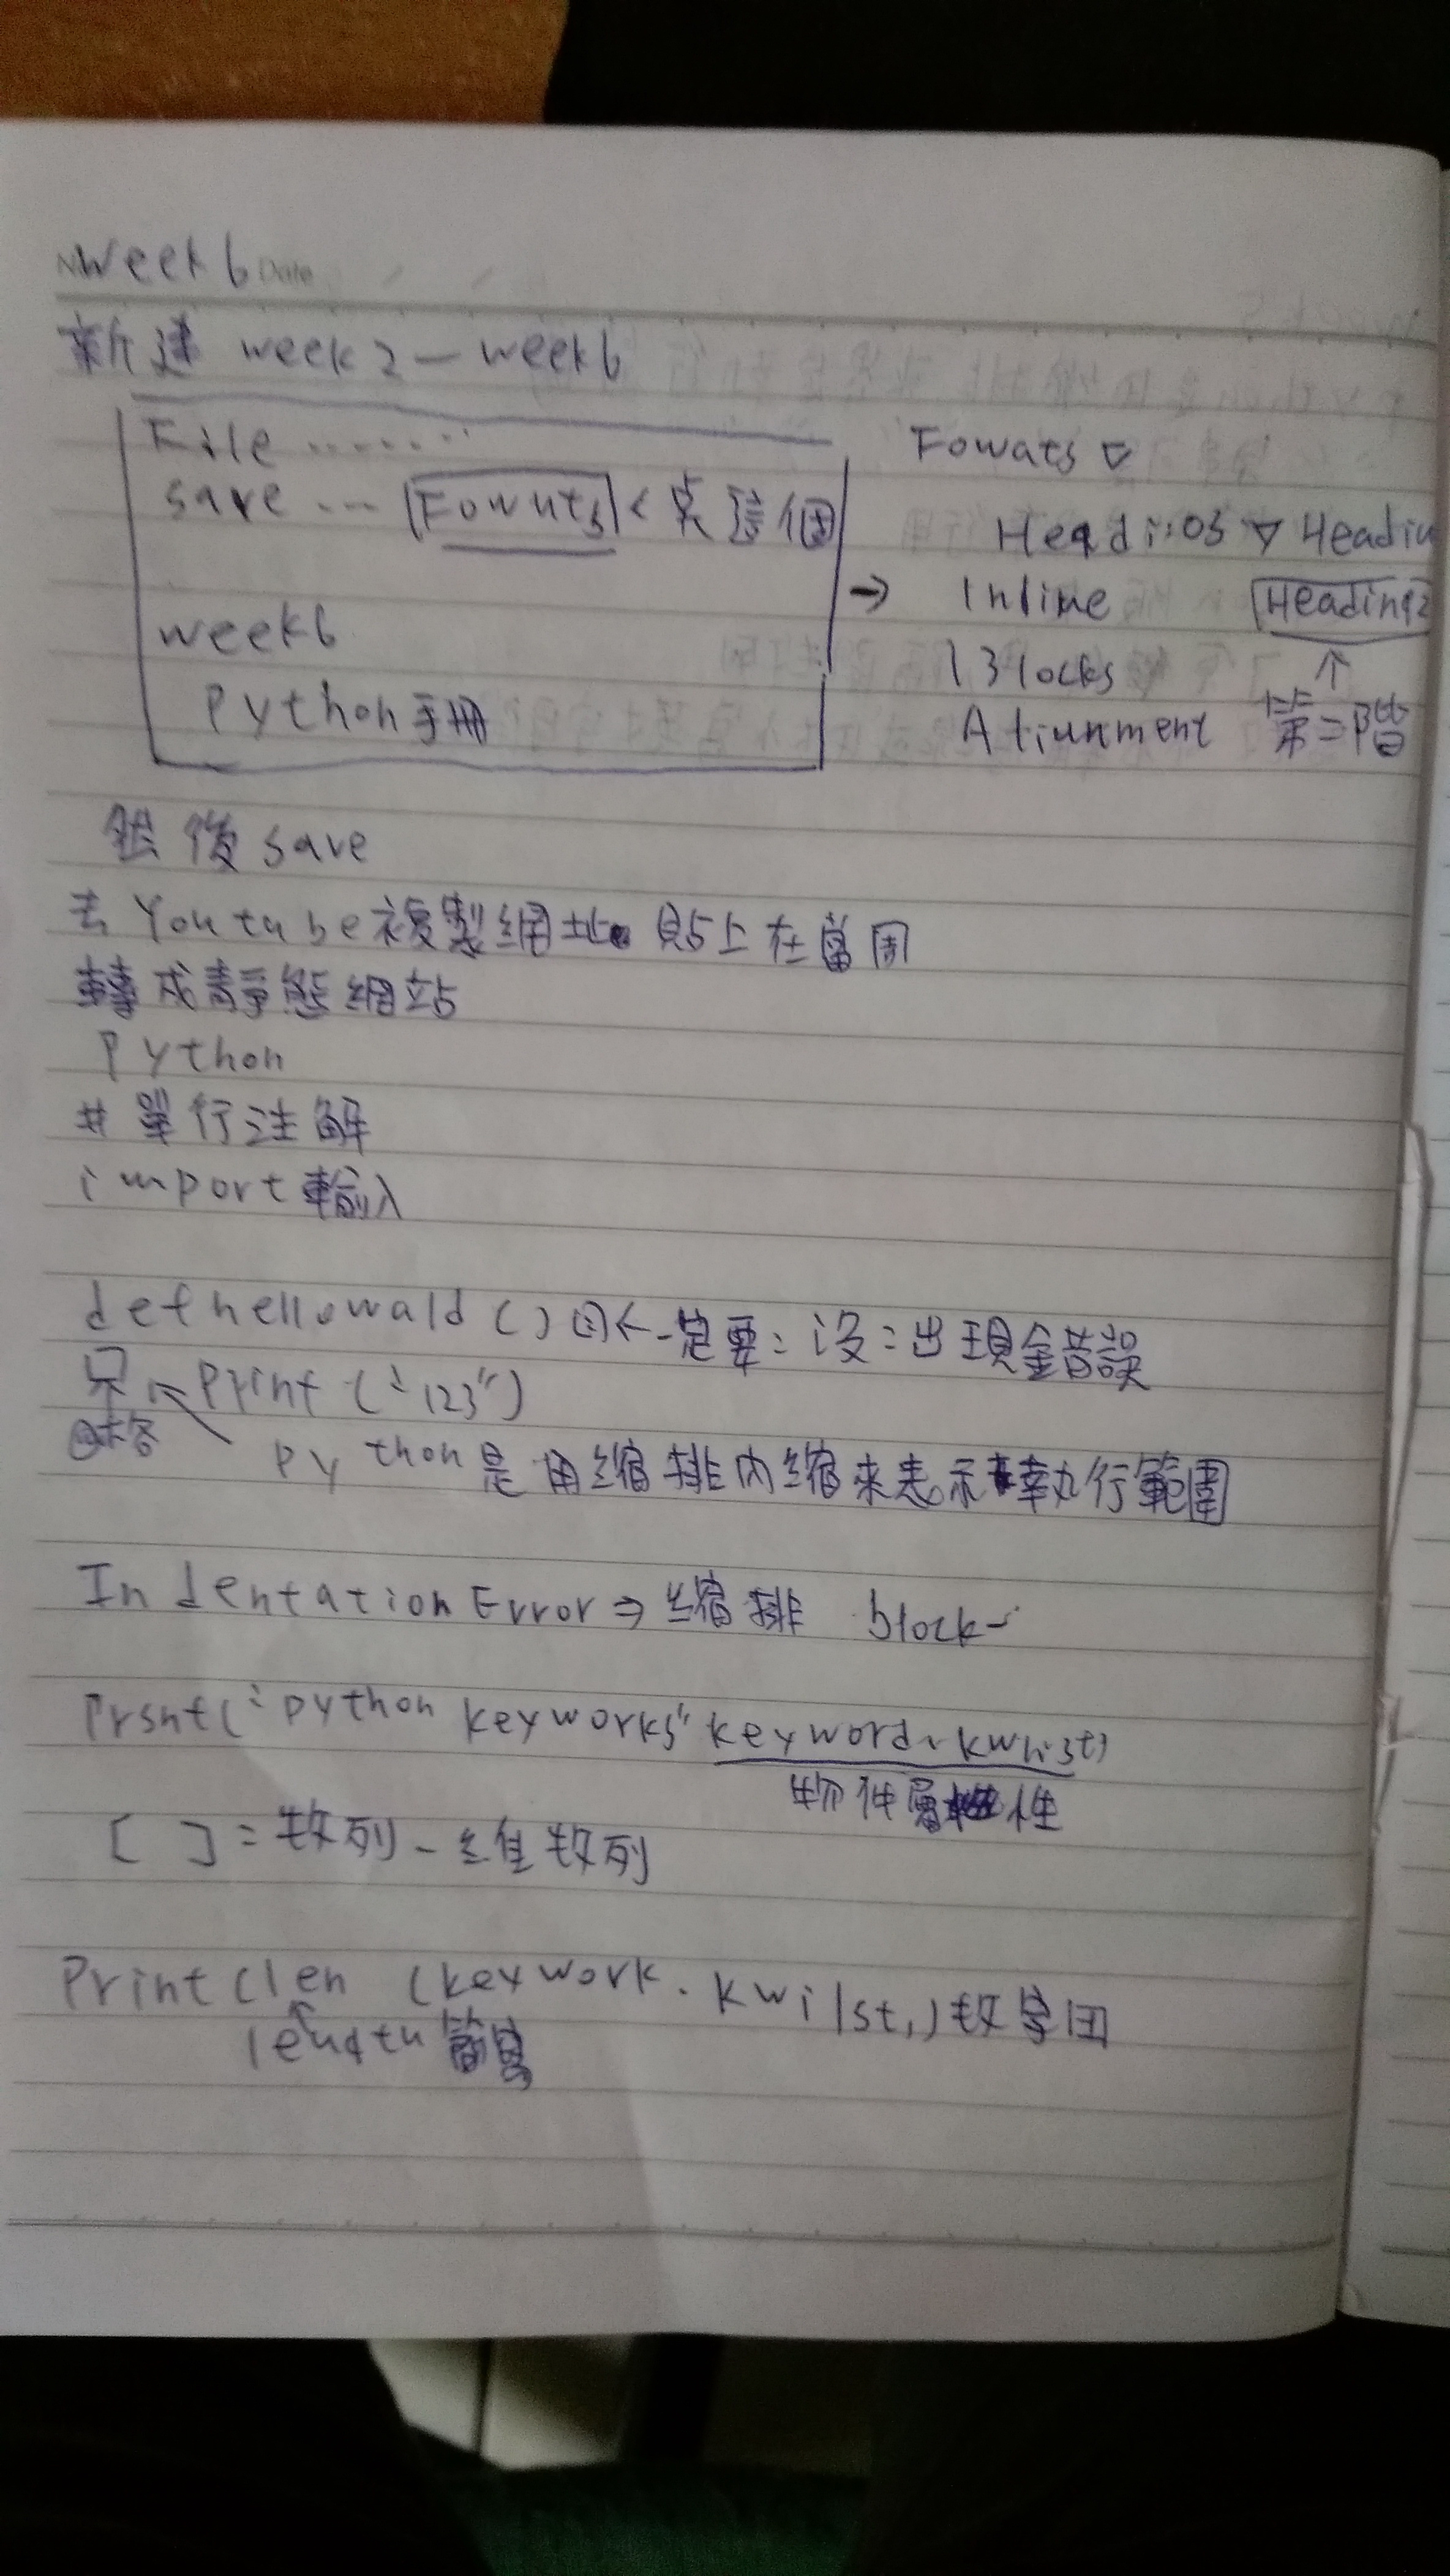 Week 6 Date
新建 week 2 — week 6
File .......
save ... Fowats < 點這個
week 6
Python 手冊
→
Fowats ▽
Headi:os ▽ Headin
Inline Heading2
Blocks ↑
Atiunment 第二階
然後 save
去 Youtube 複製網址 貼上在當周
轉成靜態網站
Python
# 單行注解
import 輸入
def hellowald ( ) : ← 一定要 : 沒 : 出現錯誤
Print ("123")
Python 是用縮排內縮來表示執行範圍
Indentation Error ⇒ 縮排 block
Prsnt ("python keyworks" keyword.kwlist)
物件屬性
[ ] = 数列 - 維数列
Print (len (keywork.kwilst,) 数字
length 簡寫